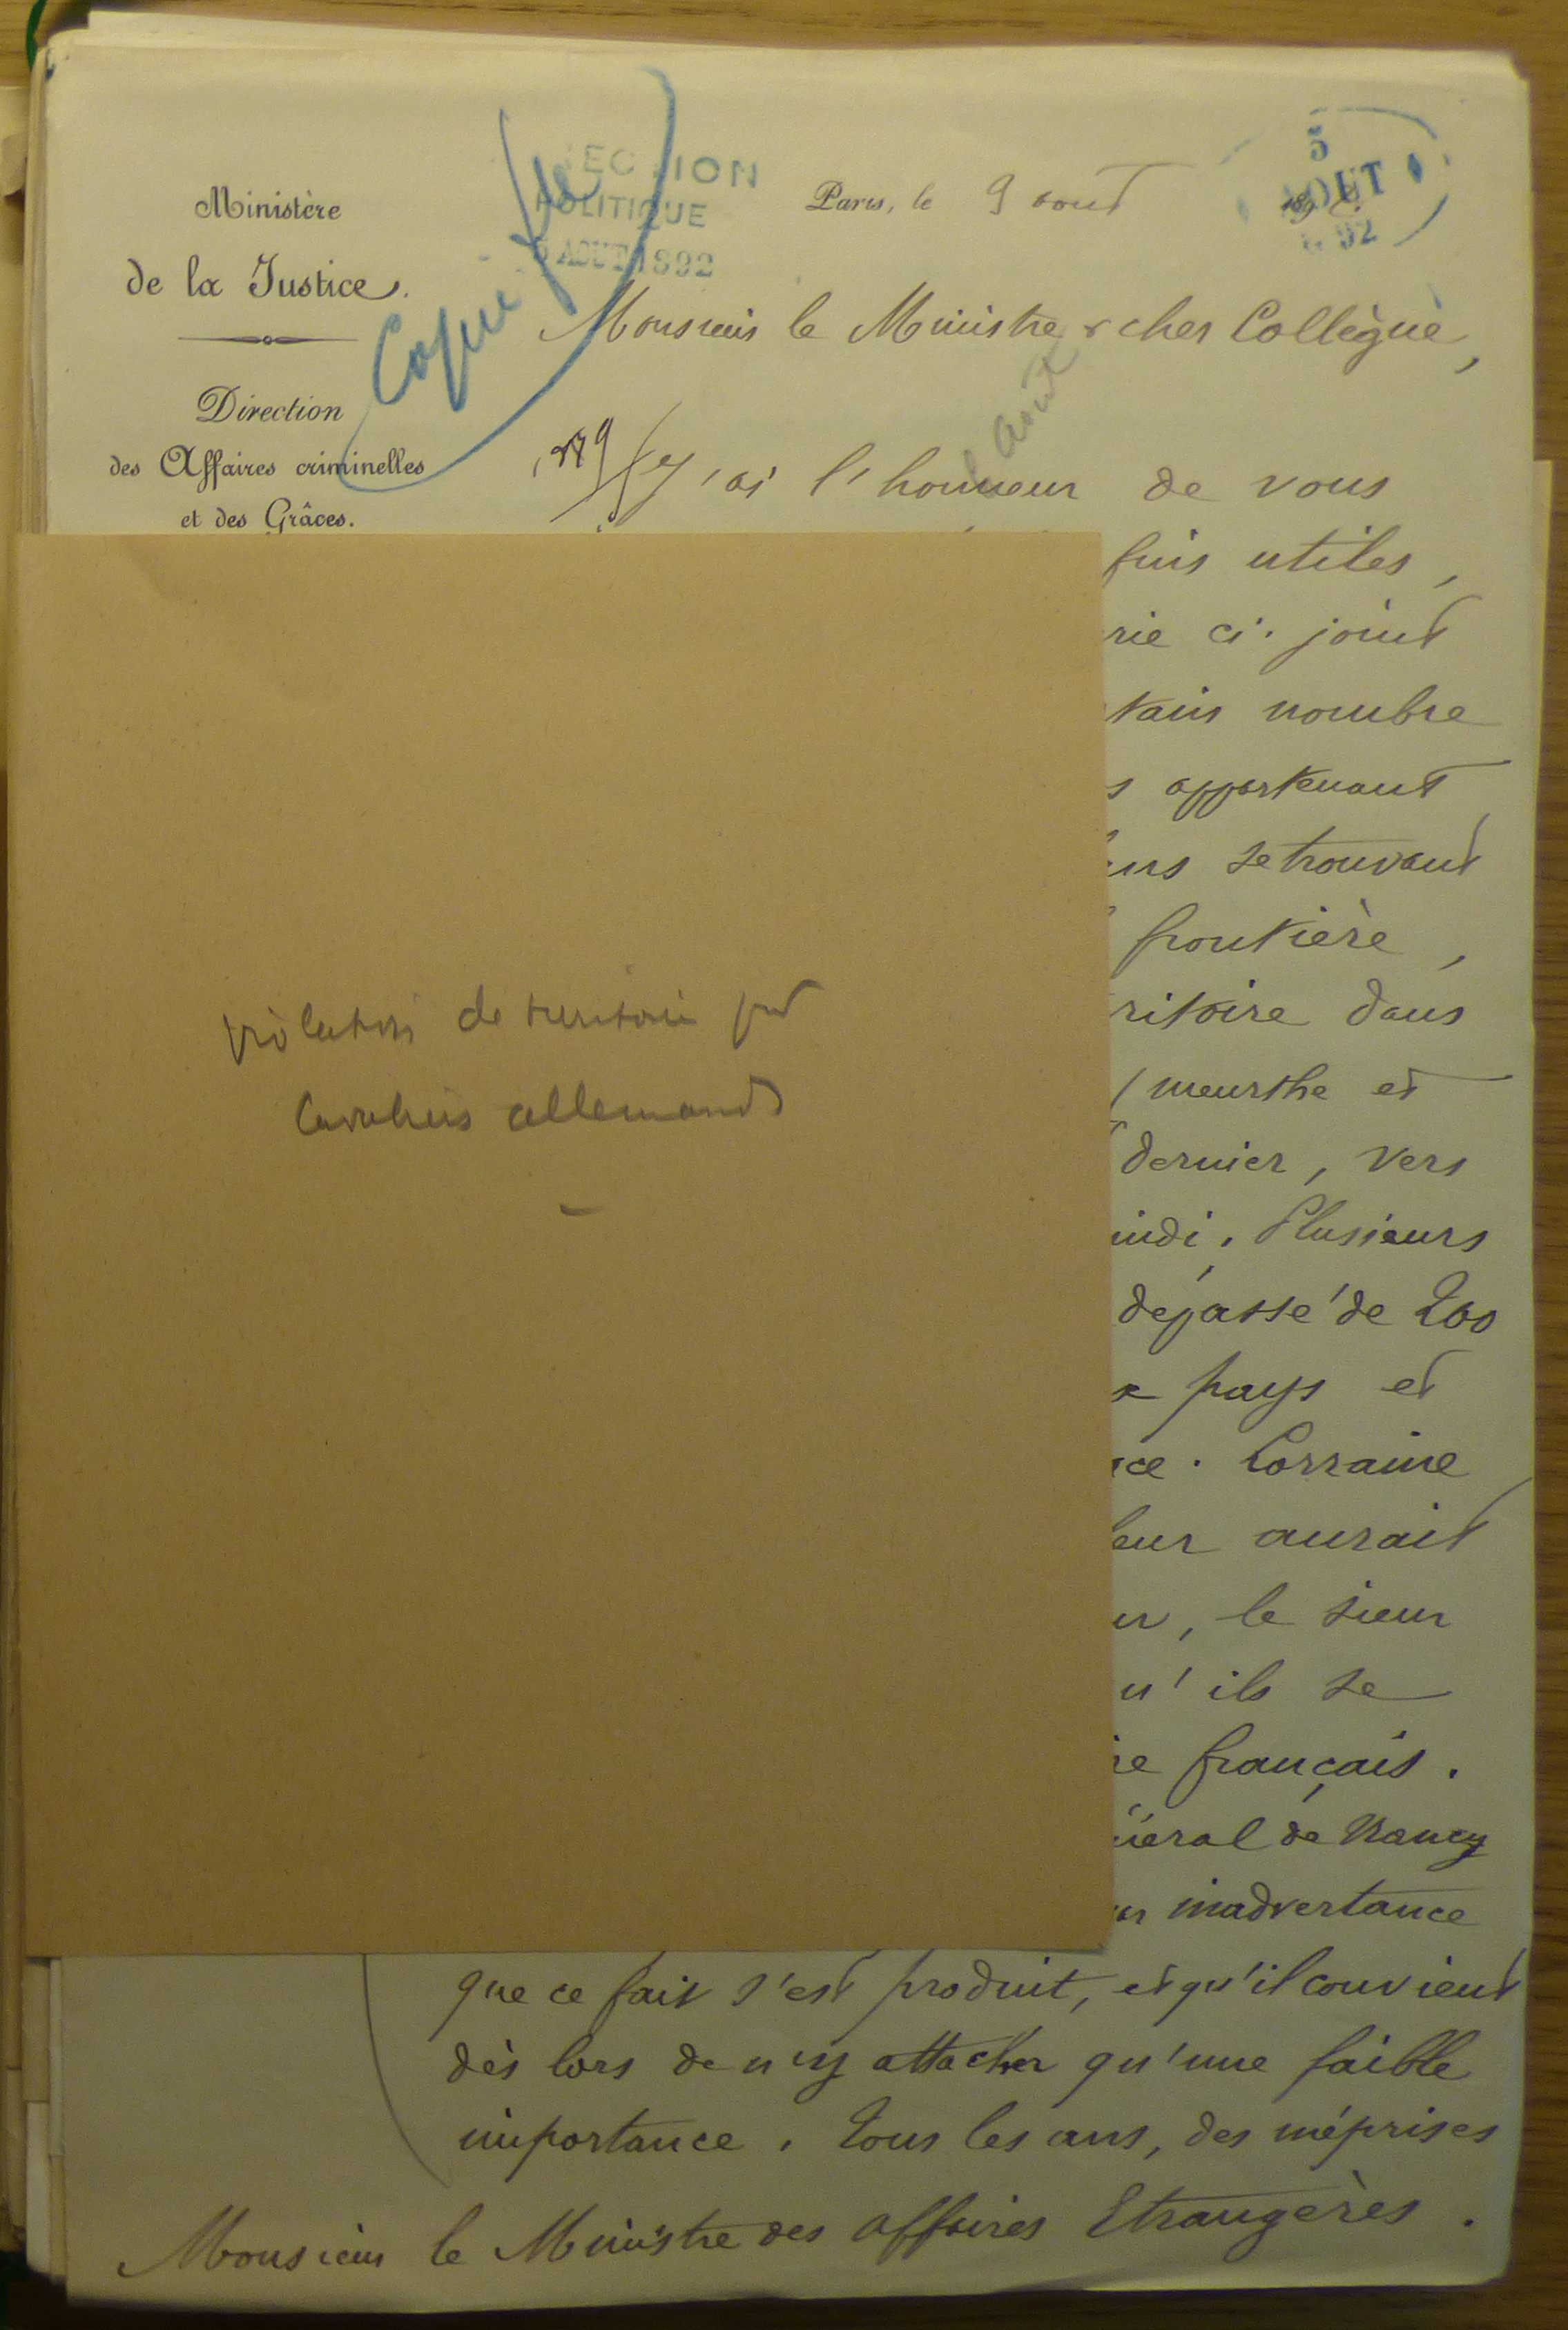 Ministère
de la Justice.
Direction
des Affaires criminelles
et des Grâces.
SECTION
POLITIQUE
5 AOUT 1892
Paris, le 9 aout
5
AOUT
92
Copie
Monsieur le Ministre & cher Collègue,
Août
J'ai l'honneur de vous
fins utiles,
rie ci-joint
tain nombre
s appartenant
ens se trouvant
frontière,
ritoire dans
(meurthe et
dernier, vers
midi. Plusieurs
dépassé de 200
x pays et
ce-Lorraine
leur aurait
ur, le sieur
u'ils se
re français.
néral de Nancy
ar inadvertance
violation de territoire par
Cavaliers allemands
que ce fait s'est produit, et qu'il convient
dès lors de n'y attacher qu'une faible
importance. Tous les ans, des méprises
Monsieur le Ministre des affaires Etrangères.